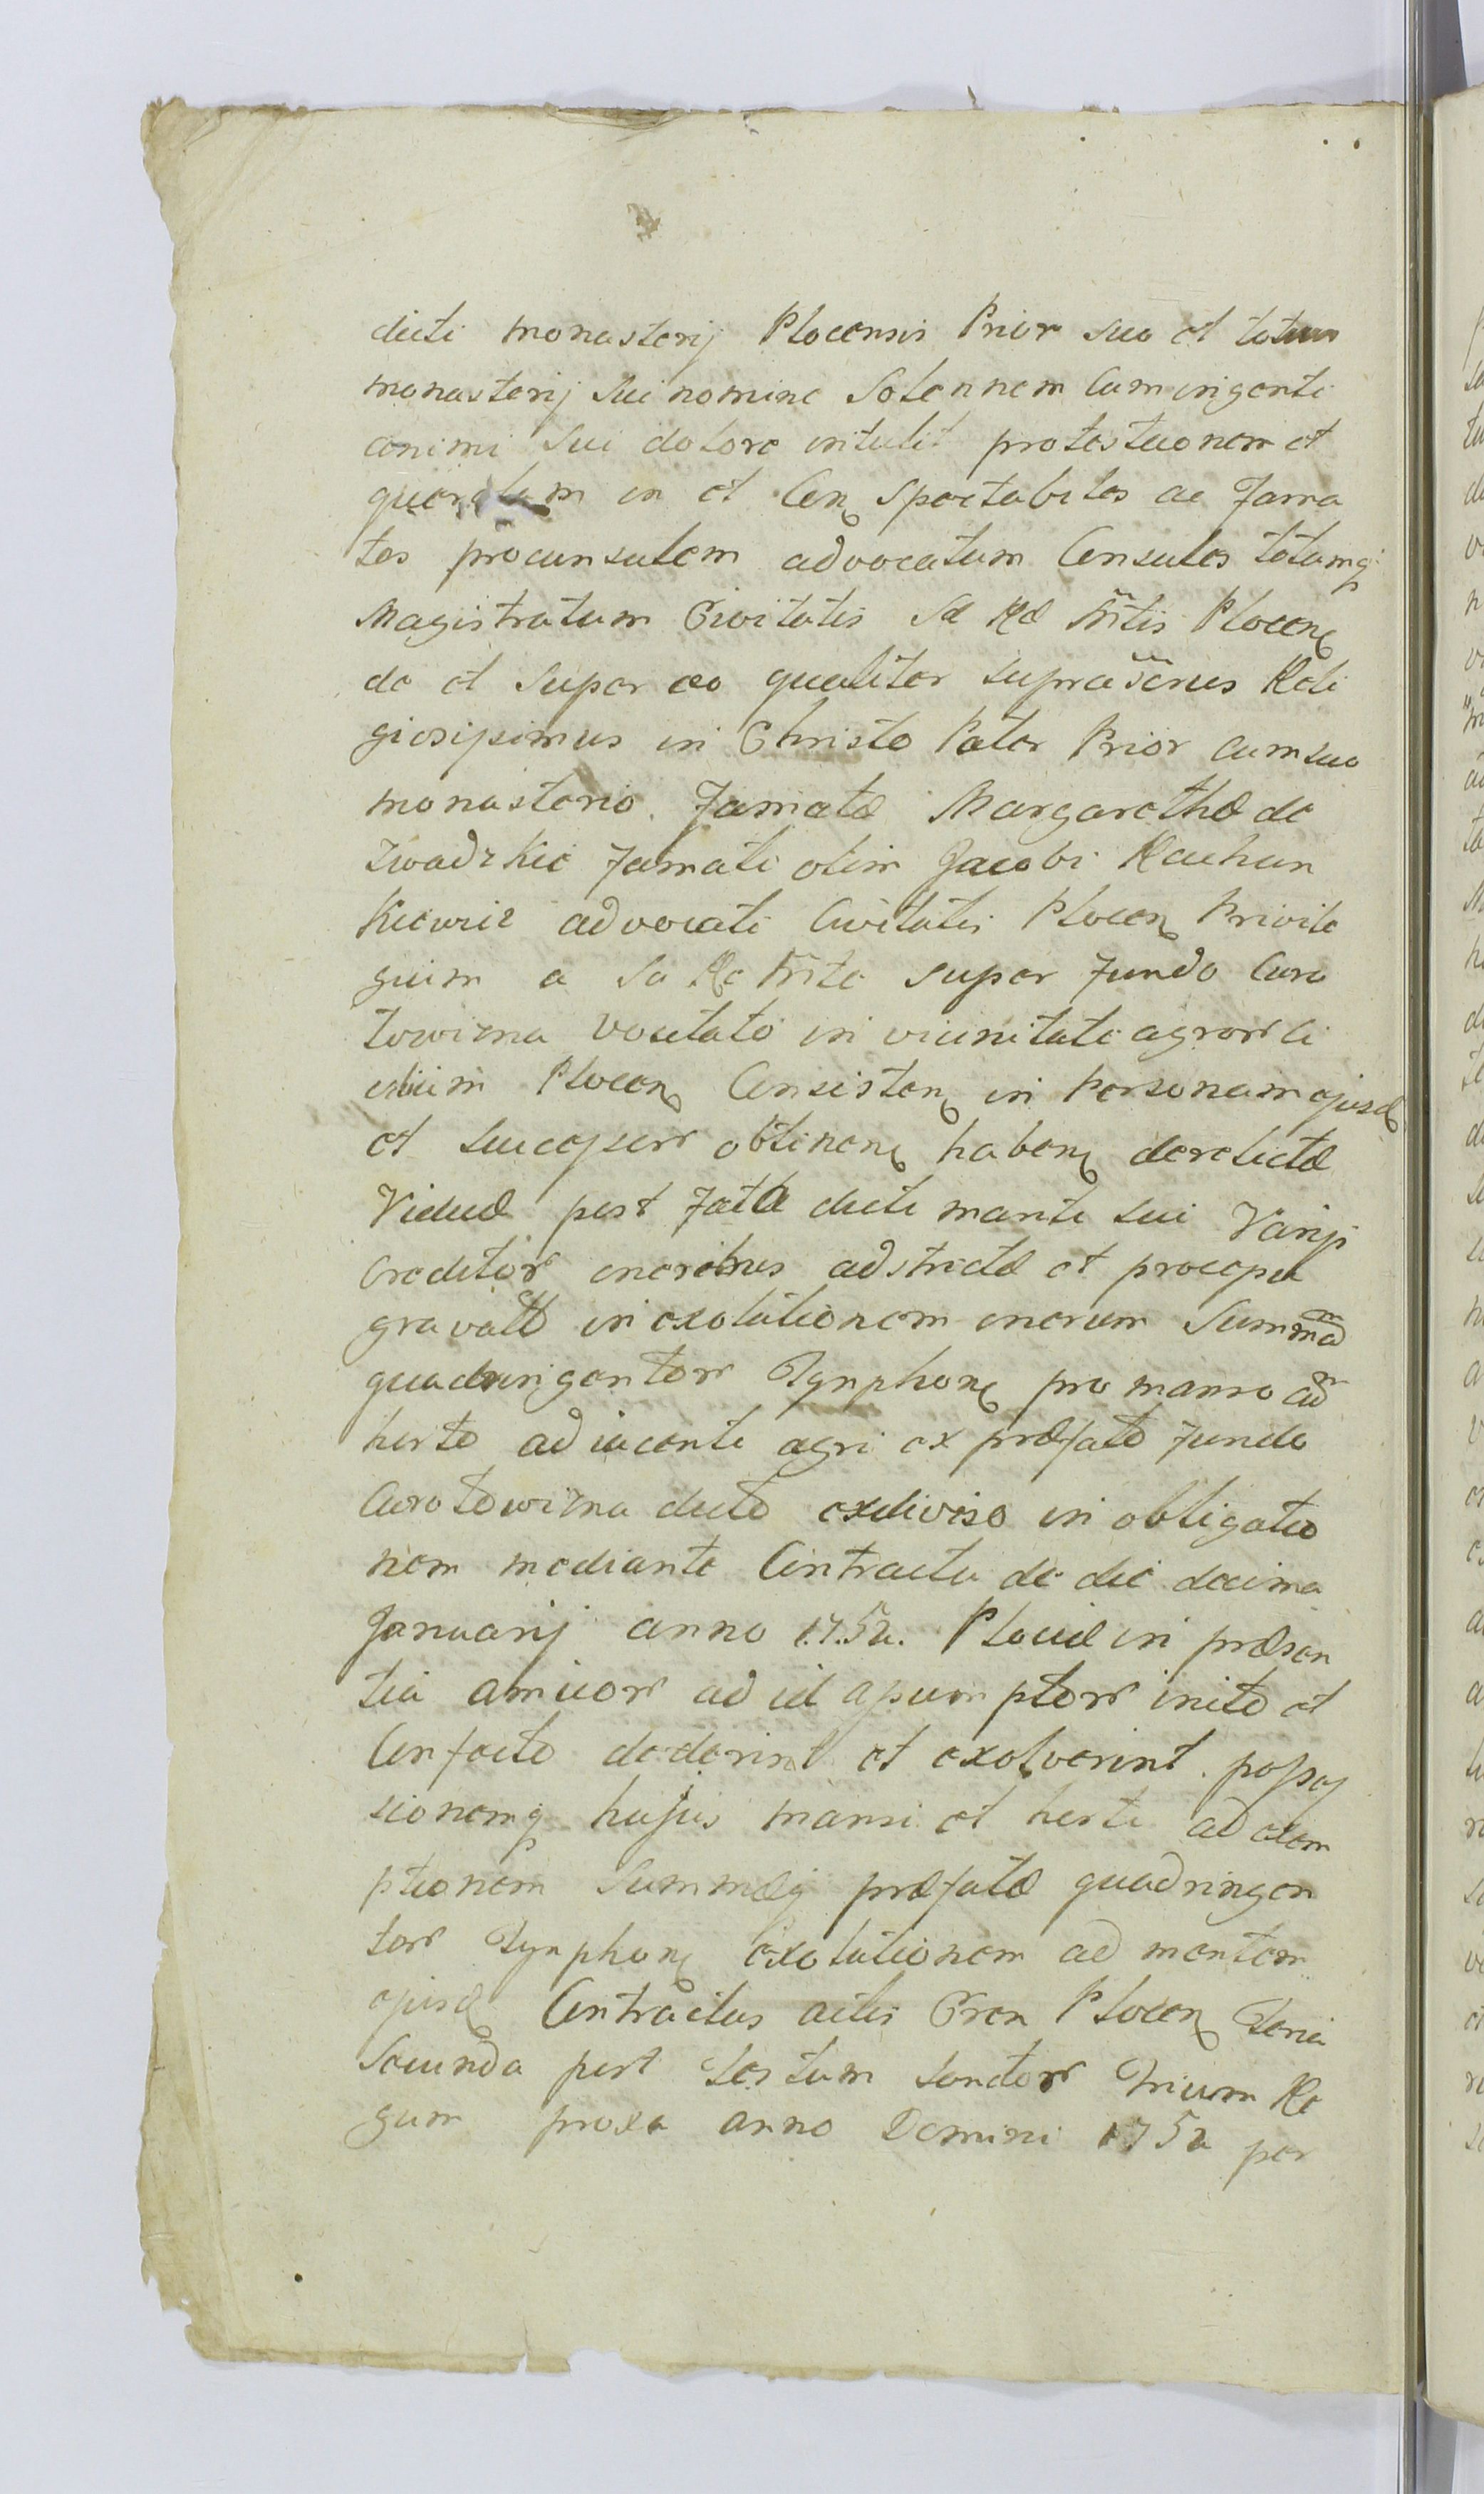 dicti monasterij Plocensis Prior suo et totius
monasterij sui nomine Solennem cum ingenti
animi sui dolore intulit protestaonem et
querelam in et Con Spectabiles ac Fama
tos proconsulem advocatum Consules totumq
Magistratum Civitatis Sæ Ræ Mtis Plocen
de et super eo qualiter suprascrius Reli
giosissimus in Christo Pater Prior cum suo
monasterio Famatæ Margarethæ de
Zwadzkie Famati olim Jacobi Kachan
Kiewicz advocati Civitatis Plocen Privile
gium a Sa Ra Mte super Fundo Curo
towizna vocitato in vicinitate agrorr ci
vilium Plocen Consisten in Personam ejusd
et Successorr obtinen haben derelictæ
Viduæ post Fata dicti mariti sui Varijs
Creditorr oneribus adstrictæ et processu
gravatæ in exolutionem onerum Summa
quadringentorr Tynphon pro manso ad
horto adiacenti agri ex præfato Fundo
Curotowizna dicto exdiviso in obligatio
nem mediante Contractu de die decima
Januarij anno 1752. Plociæ in præsen
tia amicorr ad id assumptorr inito et
Confecto dederint et exolverint. posses
sionemq hujus mansi et horti ad exem
ptionem Summæq præfatæ quadringen
torr Tynphon exolutionem ad mentem
ejusd Contractus actis Cren Plocen Feria
Secunda post Festum Sanctorr Trium Re
gum proxa anno Domini 1752 per